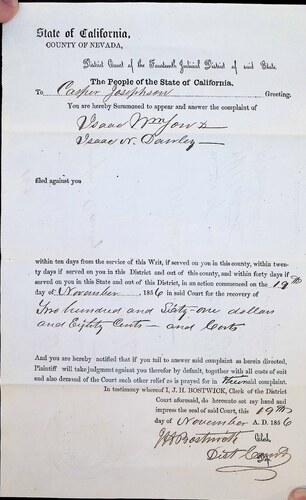 State of California,
COUNTY OF NEVADA,
District Court of the Fourteenth Judicial District of said State.
The People of the State of California.
To Casper Josephson Greeting.
You are hereby Summoned to appear and answer the complaint of
Isaac Wm &
Isaac N. Dawley
filed against you
within ten days from the service of this Writ, if served on you in this county, within twen-
ty days if served on you in this District and out of this county, and within forty days if
served on you in this State and out of this District, in an action commenced on the 19th
day of November, 1856 in said Court for the recovery of
Two hundred and Sixty-one dollars
and Eighty Cents — and Costs
And you are hereby notified that if you fail to answer said complaint as herein directed,
Plaintiff will take judgment against you therefor by default, together with all costs of suit
and also demand of the Court such other relief as is prayed for in said complaint.
In testimony whereof I, J. H. BOSTWICK, Clerk of the District
Court aforesaid, do hereunto set my hand and
impress the seal of said Court, this 19th
day of November A. D. 1856
J H Bostwick Clerk,
Dist Court